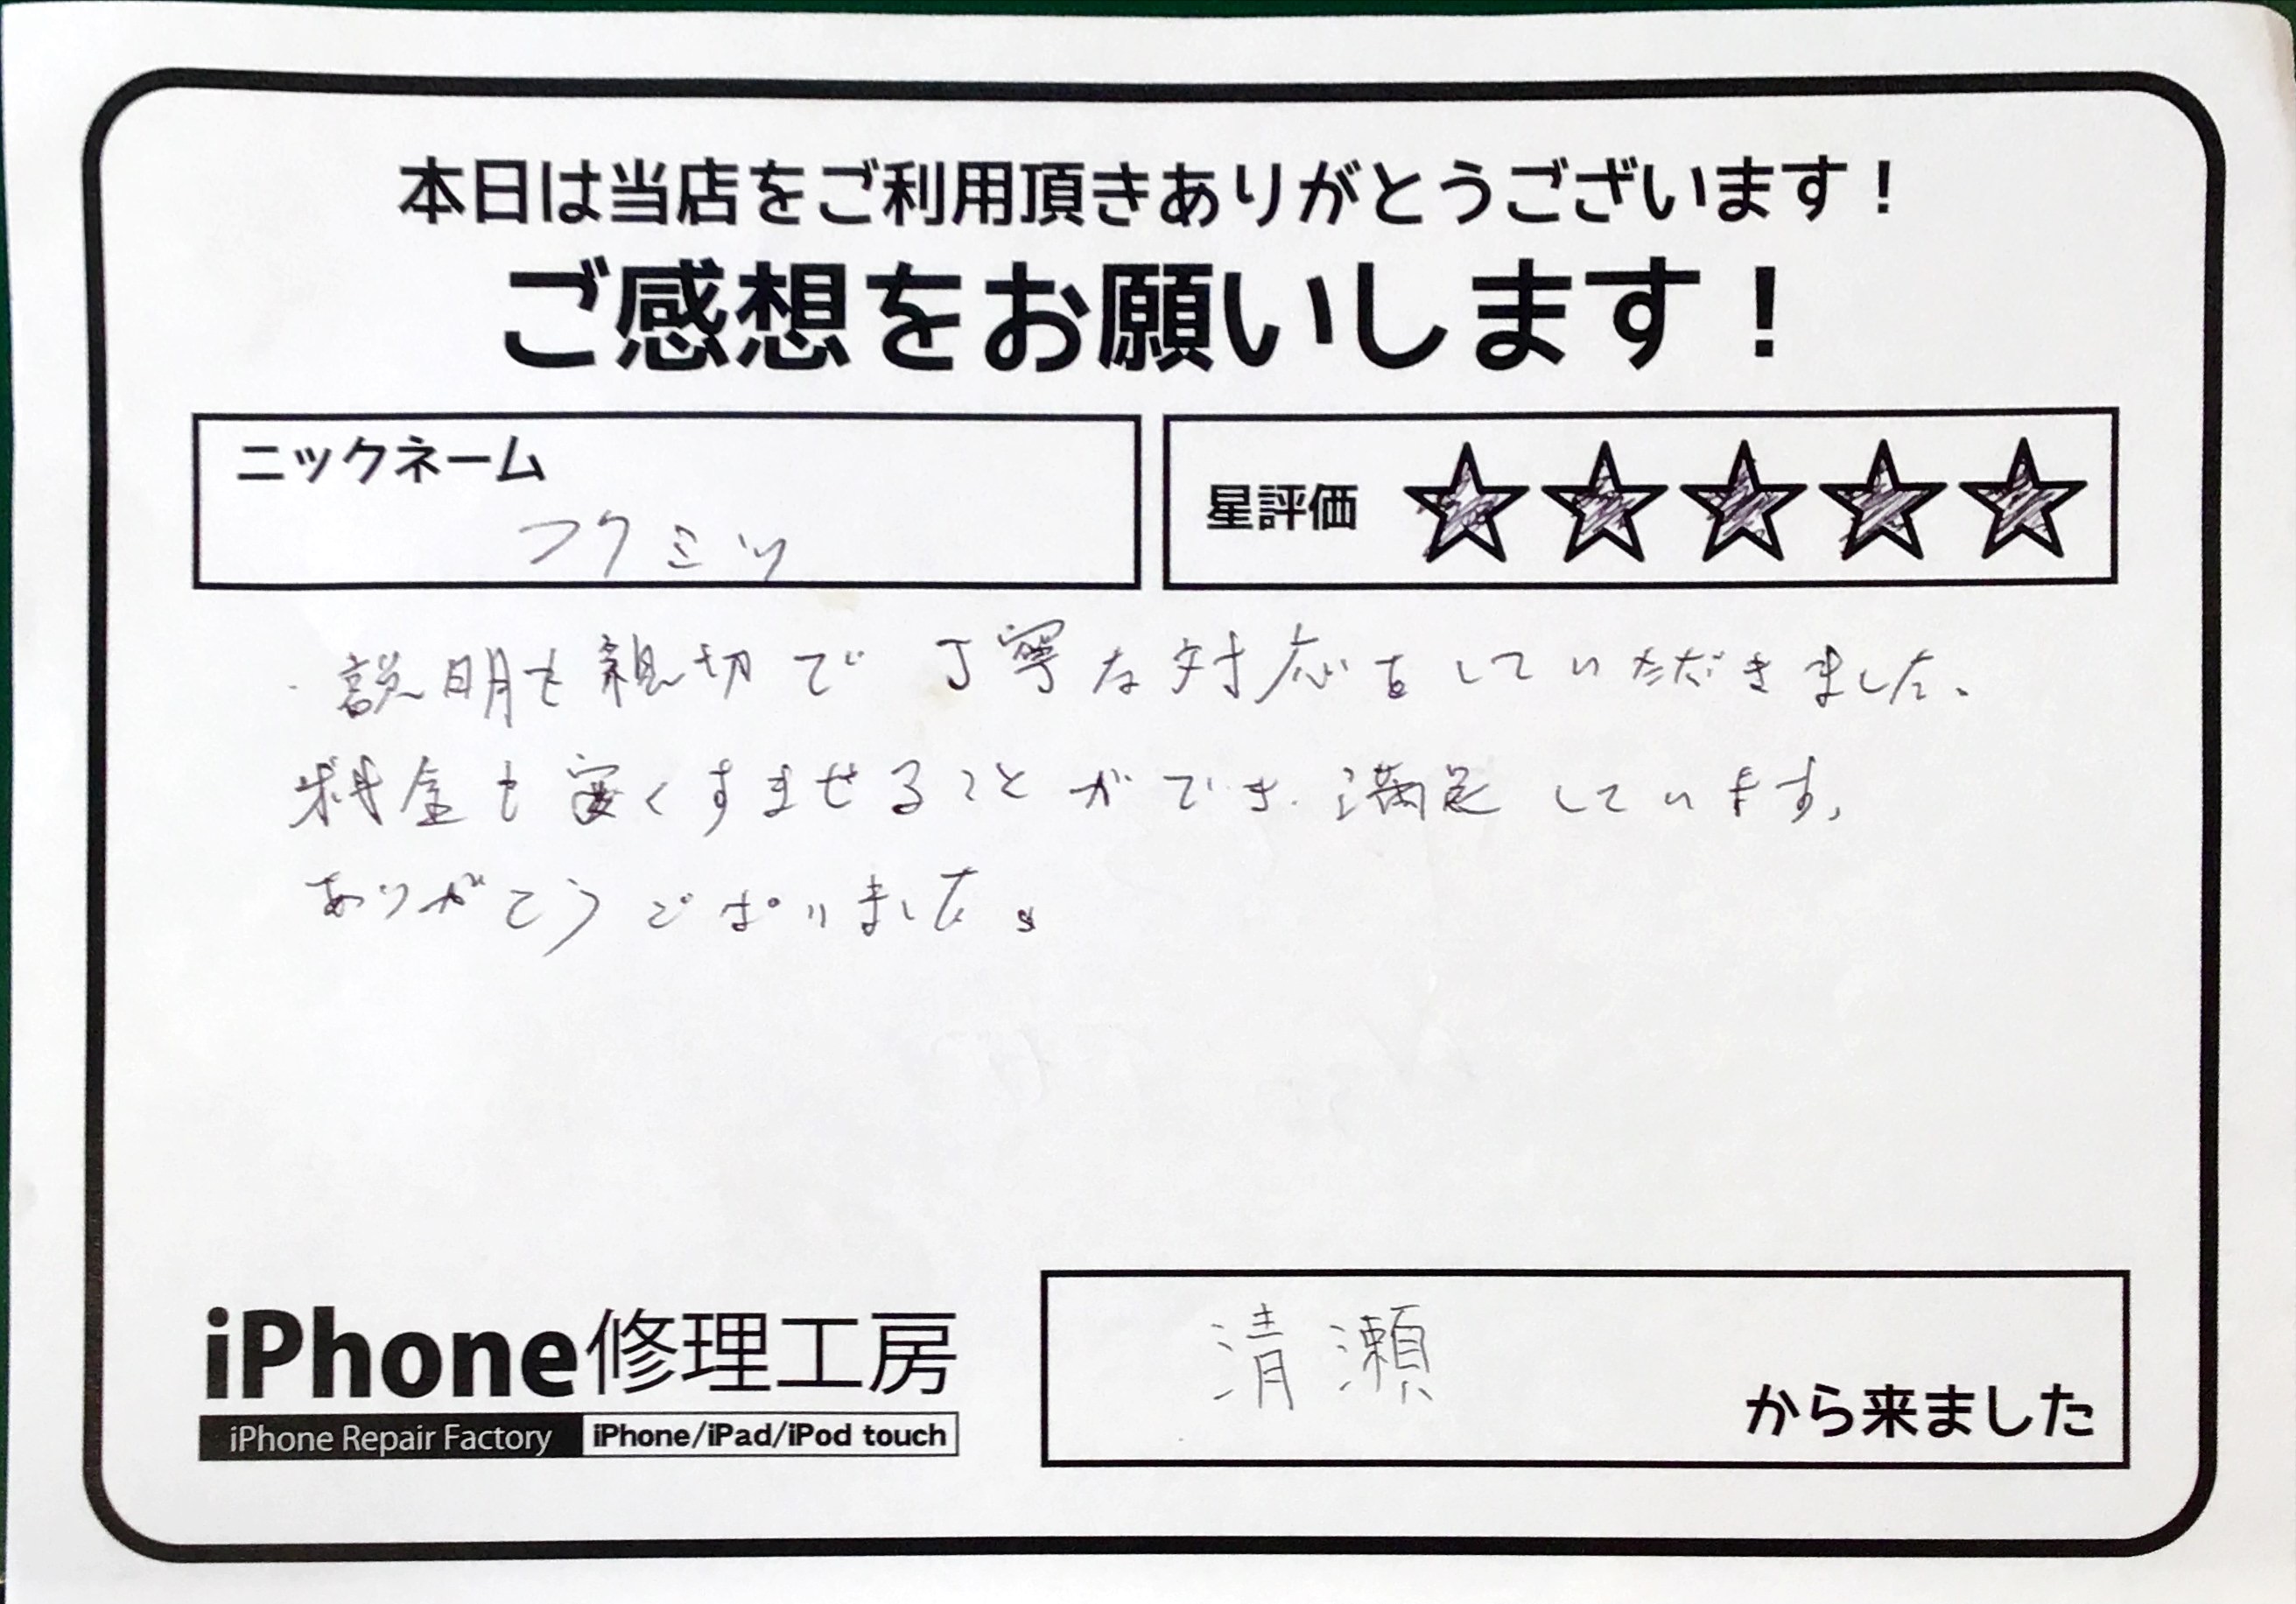 本日は当店をご利用頂きありがとうございます！
ご感想をお願いします！
ニックネーム
フクミツ
星評価 ★★★★★
説明も親切で丁寧な対応をしていただきました。
料金も安くすませることができ満足しています。
ありがとうございました。
iPhone修理工房
iPhone Repair Factory iPhone/iPad/iPod touch
清瀬
から来ました